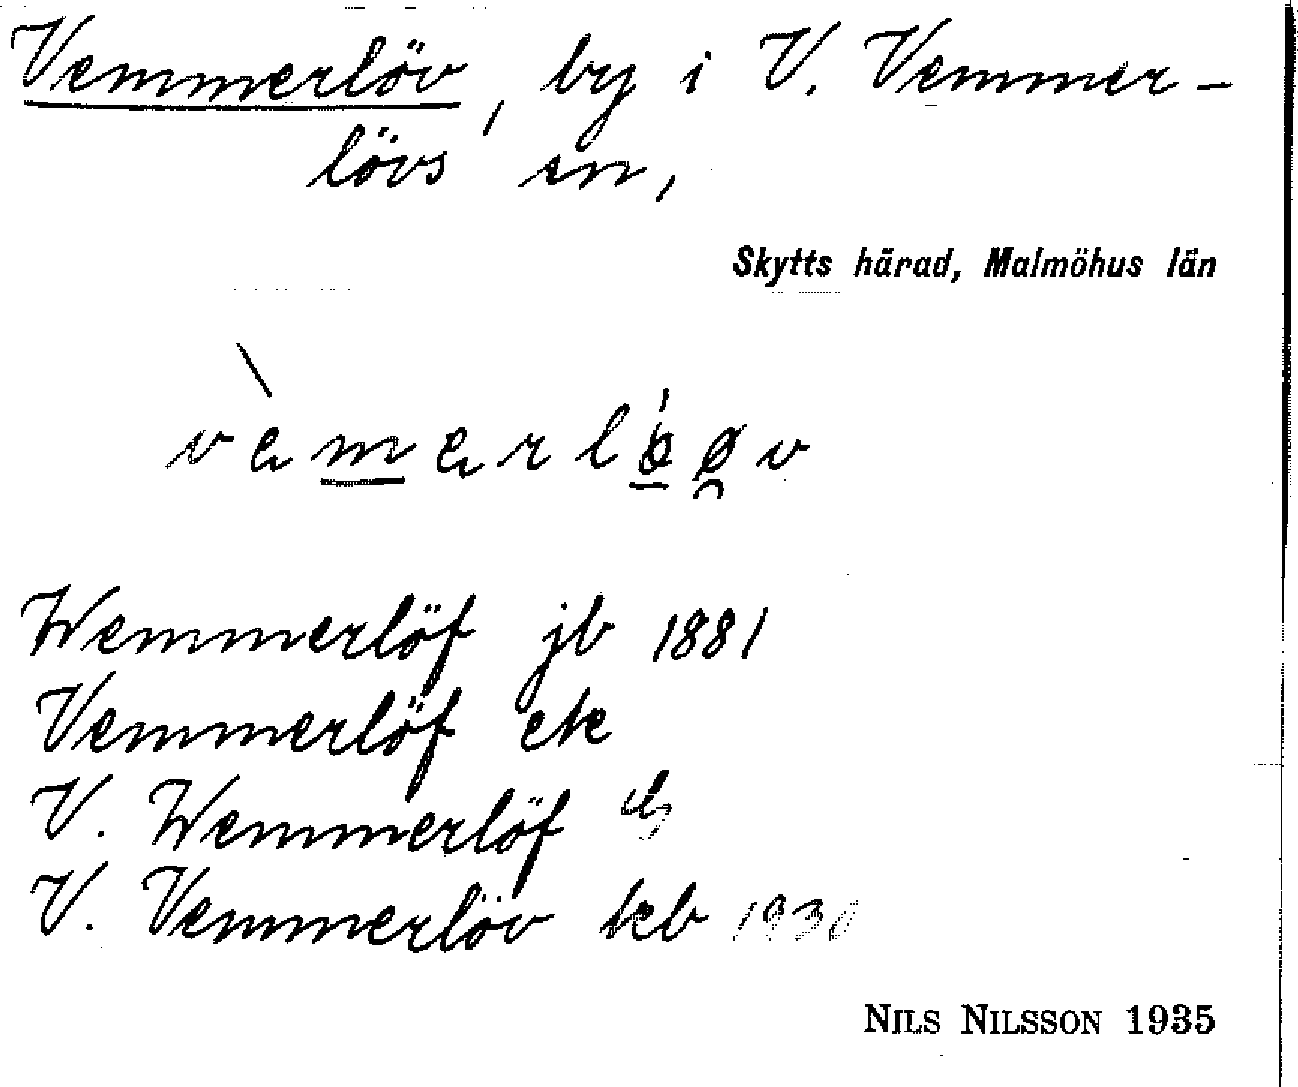 Vemmerlöv, by i V. Vemmer-
lövs sn,
Skytts härad, Malmöhus län
Wemmerlöf jb 1881
Vemmerlöf ek
V. Wemmerlöf
V. Vemmerlöv tkb 1930
NILS NILSSON 1935